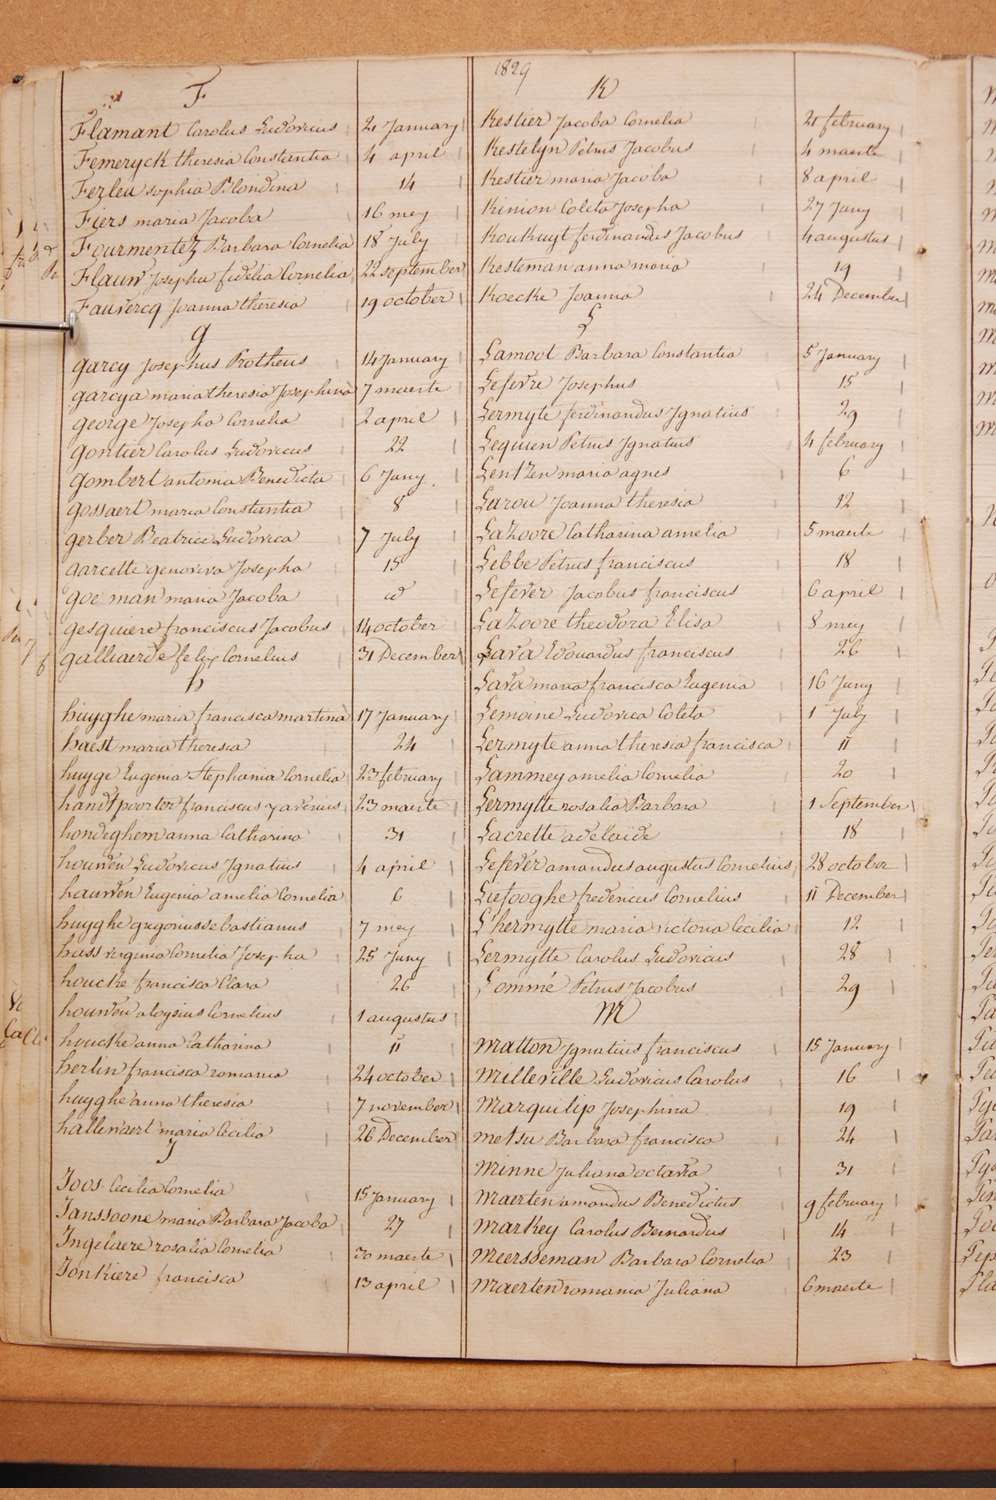 1829
F
Flamant Carolus Ludovicus 21 January
Femeryck theresia Constantia 4 april
Fezleu sophia Blondina 14
Fiers maria Jacoba 16 mey
Fourmentez Barbara Cornelia 18 July
Flauw Josepha fidelia Cornelia 22 september
Fauvercq Joanna theresia 19 october
g
garcy Josephus Protheus 14 January
garcya maria theresia Josephina 7 maerte
george Josepha Cornelia 2 april
gontier Carolus Ludovicus 22
gombert antonia Benedicta 6 Juny
gossaert maria Constantia 8
gerber Beatrice Ludovica 7 July
garcette genoveva Josepha 15
goeman maria Jacoba
gesquiere franciscus Jacobus 14 october
galliaerde felix Cornelius 31 December
h
huyghe maria francisca martina 17 January
haest maria theresia 24
huyge Eugenia Stephania Cornelia 23 february
handtpoorter franciscus xaverius 23 maerte
hondeghem anna Catharina 31
houwen Ludovicus Ignatius 4 april
hauwen Eugenia amelia Cornelia 6
huyghe gregorius sebastianus 7 mey
hass virginia Cornelia Josepha 25 Juny
houcke francisca Clara 26
houwen aloysius Cornelius 1 augustus
houcke anna Catharina 11
herlin francisca romania 24 october
huyghe anna theresia 7 november
hallewaert maria Cecilia 26 December
J
Joos Cecilia Cornelia 15 January
Janssoone maria Barbara Jacoba 27
Ingelaere rosalia Cornelia 30 maerte
Jonkiere francisca 13 april
K
Kestier Jacoba Cornelia 21 february
Kestelyn Petrus Jacobus 4 maerte
Kestier maria Jacoba 8 april
Kinion Coleta Josepha 27 Juny
Koukuyt ferdinandus Jacobus 4 augustus
Kesteman anna maria 19
Koecke Joanna 24 December
L
Lamoot Barbara Constantia 5 January
Lefevre Josephus 15
Lermyte ferdinandus Ignatius 29
Lequien Petrus Ignatius 4 february
Lentzen maria agnes 6
Larou Joanna theresia 12
LaZoore Catharina amelia 5 maerte
Lebbe Petrus franciscus 18
Lefever Jacobus franciscus 6 april
LaZoore theodora Elisa 8 mey
Lava Edouardus franciscus 26
Lava maria francisca Eugenia 16 Juny
Lemoine Ludovica Coleta 1 July
Lermyte anna theresia francisca 11
Lammey amelia Cornelia 20
Lermytte rosalia Barbara 1 September
Lacrette adelaide 18
Lefever amandus augustus Cornelius 28 october
Liefooghe fredericus Cornelius 11 December
L'hermytte maria victoria Cecilia 12
Lermytte Carolus Ludovicus 28
Lommé Petrus Jacobus 29
M
Matton Ignatius franciscus 15 January
Milleville Ludovicus Carolus 16
Marquilip Josephina 19
metsu Barbara francisca 24
Minne Juliana octavia 31
Maerten amandus Benedictus 9 february
Markey Carolus Bernardus 14
Meersseman Barbara Cornelia 23
Maerten romania Juliana 6 maerte